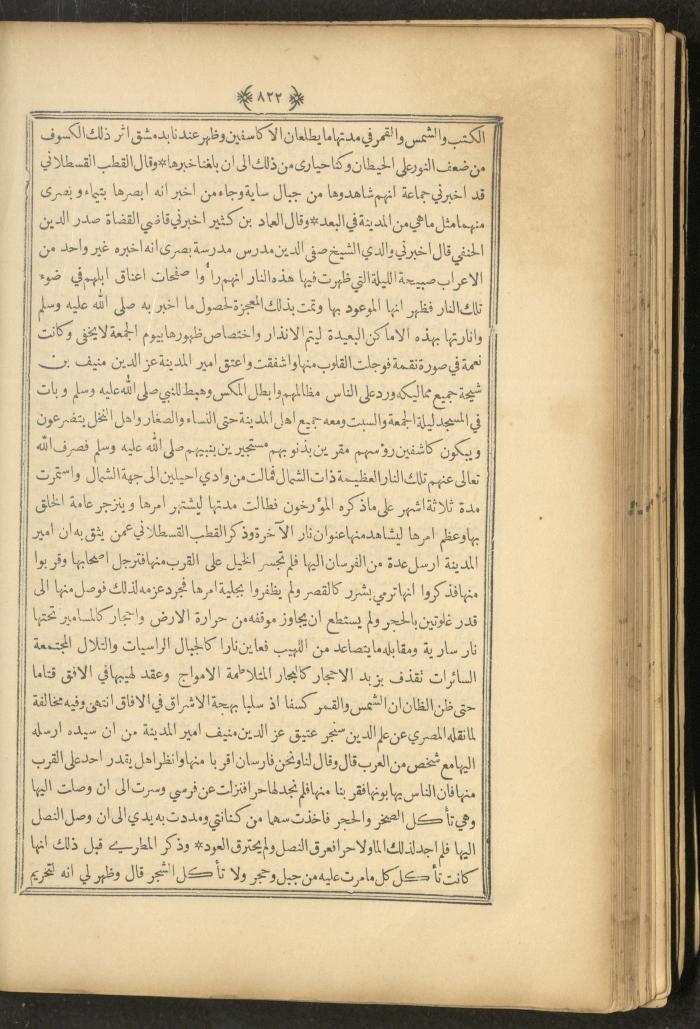 ﴿٨٢٢﴾
الكتب والشمس والقمر في مدتها ما يطلعان الا كاسفين وظهر عندنا بدمشق اثر ذلك الكسوف
من ضعف النور على الحيطان وكنا حيارى من ذلك الى ان بلغنا خبرها* وقال القطب القسطلاني
قد اخبرني جماعة انهم شاهدوها من جبال ساية وجاء من اخبر انه ابصرها بتيماء وبصرى
منهما مثل ماهي من المدينة في البعد* وقال العماد بن كثير اخبرني قاضي القضاة صدر الدين
الحنفي قال اخبرني والدي الشيخ صفي الدين مدرس مدرسة بصرى انه اخبره غير واحد من
الاعراب صبيحة الليلة التي ظهرت فيها هذه النار انهم رأوا صفحات اعناق ابلهم في ضوء
تلك النار فظهر انها الموعود بها وتمت بذلك المعجزة لحصول ما اخبر به صلى الله عليه وسلم
وانارتها بهذه الاماكن البعيدة ليتم الانذار واختصاص ظهورها بيوم الجمعة لا يخفى وكانت
نعمة في صورة نقمة فوجلت القلوب منها واشفقت واعتق امير المدينة عز الدين منيف بن
شيحة جميع مماليكه ورد على الناس مظالمهم وابطل المكس وهبط للنبي صلى الله عليه وسلم وبات
في المسجد ليلة الجمعة والسبت ومعه جميع اهل المدينة حتى النساء والصغار واهل النخل يتضرعون
ويبكون كاشفين رؤسهم مقرين بذنوبهم مستجيرين بنبيهم صلى الله عليه وسلم فصرف الله
تعالى عنهم تلك النار العظيمة ذات الشمال فمالت من وادي احيلين الى جهة الشمال واستمرت
مدة ثلاثة اشهر على ما ذكره المؤرخون فطالت مدتها ليشتهر امرها وينزجر عامة الخلق
بها وعظم امرها ليشاهد منها عنوان نار الآخرة وذكر القطب القسطلاني عمن يثق به ان امير
المدينة ارسل عدة من الفرسان اليها فلم تجسر الخيل على القرب منها فترجل اصحابها وقربوا
منها فذكروا انها ترمي بشرر كالقصر ولم يظفروا بجلية امرها فجرد عزمه لذلك فوصل منها الى
قدر غلوتين بالحجر ولم يستطع ان يجاوز موقفه من حرارة الارض واحجار كالمسامير تحتها
نار سارية ومقابله ما يتصاعد من اللهيب فعاين نارا كالجبال الراسيات والتلال المجتمعة
السائرات تقذف بزبد الاحجار كالبحار المتلاطمة الامواج وعقد لهيبها في الافق قتاما
حتى ظن الظان ان الشمس والقمر كسفا اذ سلبا بهجة الاشراق في الافاق انتهى وفيه مخالفة
لما نقله المصري عن علم الدين سنجر عتيق عز الدين منيف امير المدينة من ان سيده ارسله
اليها مع شخص من العرب قال وقال لنا ونحن فارسان اقربا منها وانظرا هل يقدر احد على القرب
منها فان الناس يهابونها فقربنا منها فلم نجد لها حرا فنزلت عن فرسي وسرت الى ان وصلت اليها
وهي تأكل الصخر والحجر فاخذت سهما من كنانتي ومددت به يدي الى ان وصل النصل
اليها فلم اجد لذلك الما ولا حرا فعرق النصل ولم يحترق العود* وذكر المطري قبل ذلك انها
كانت تأكل كل ما مرت عليه من جبل وحجر ولا تأكل الشجر قال وظهر لي انه لتحريم